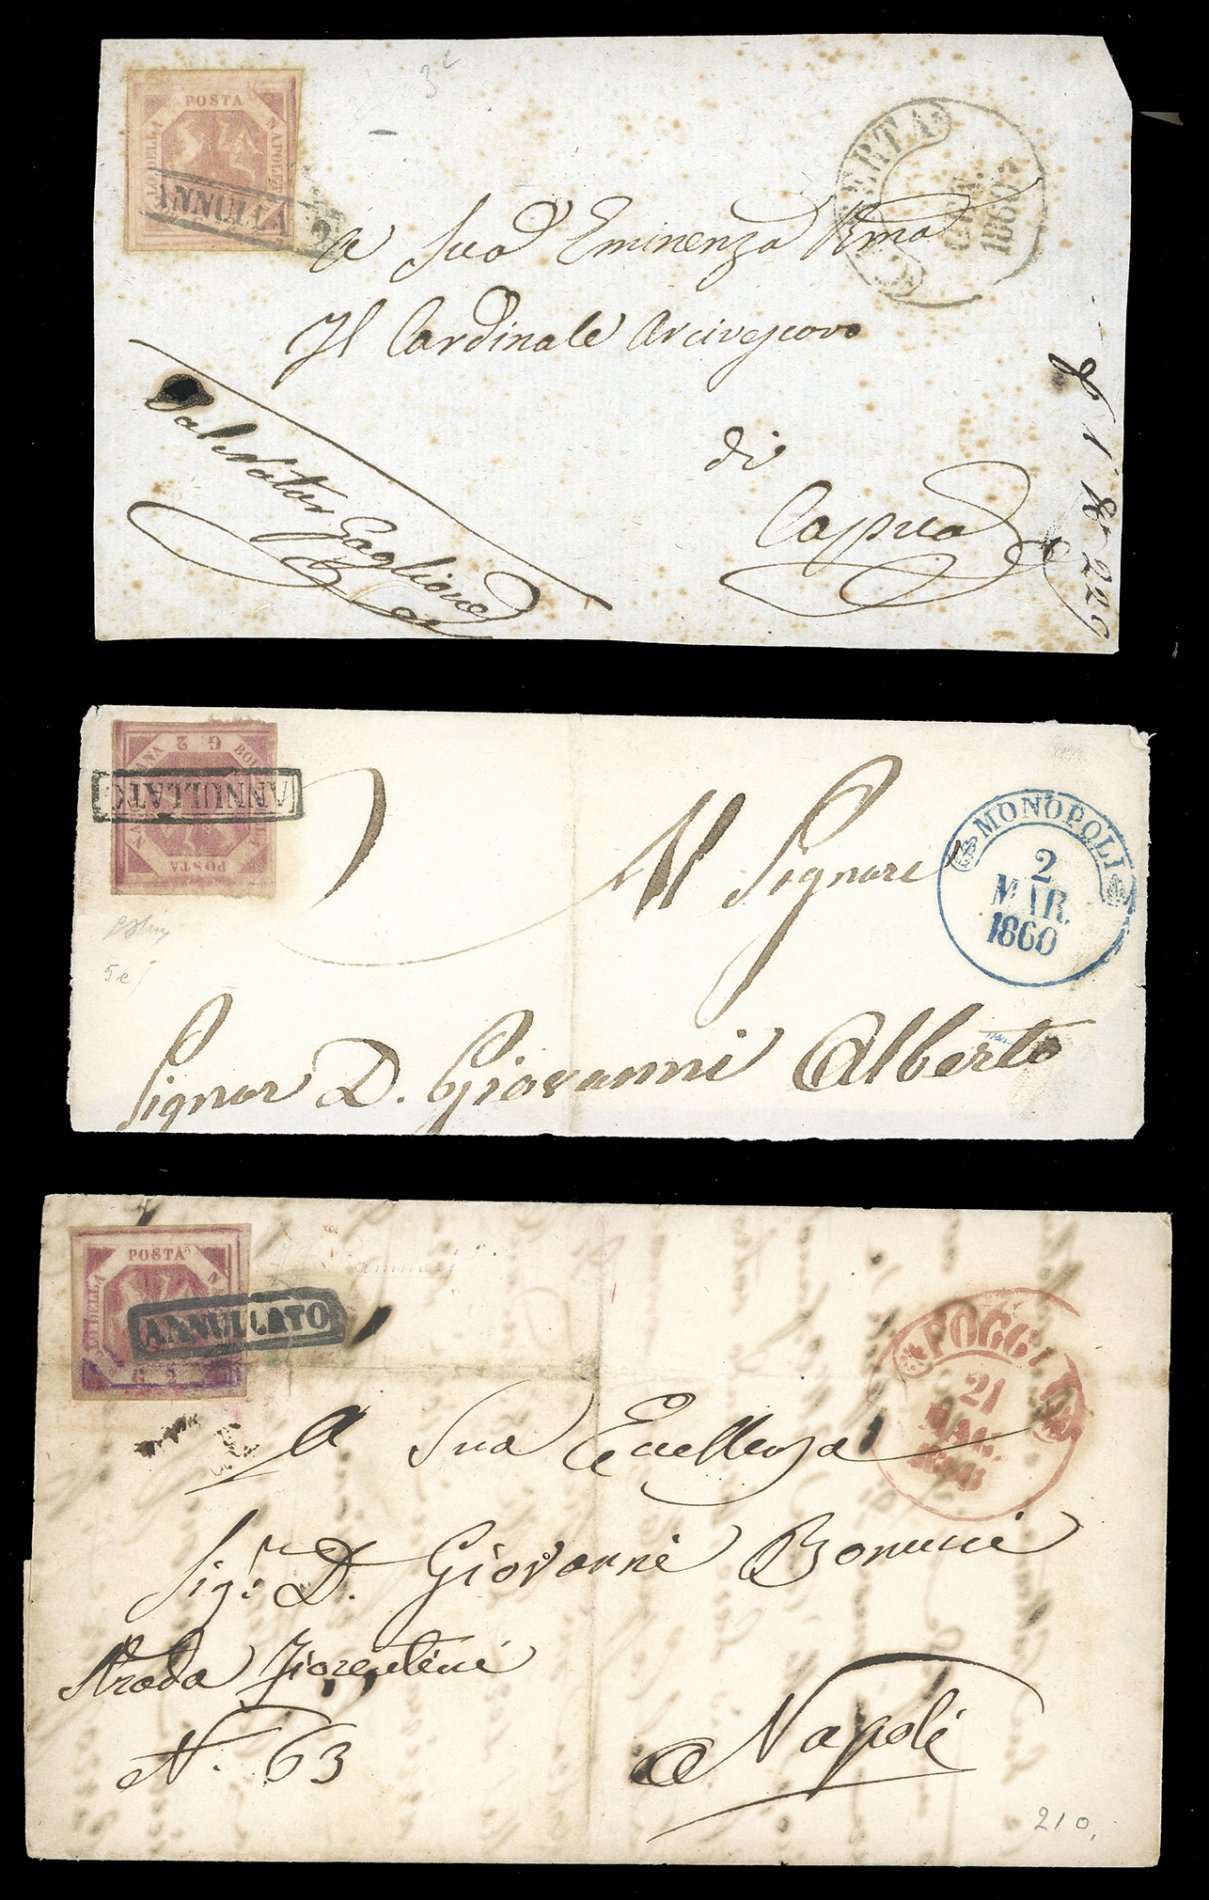 POSTA
NAPOLETANA
BOLLO DELLA
ANNULLATO
3c
CASERTA
GEN.
1860
a Sua Eminenza Rma
Il Cardinale Arcivescovo
di
Capua
Salvator Gaglione
G. 2
POSTA
ANNULLATO
MONOPOLI
2
MAR.
1860
Al Signore
Signor D. Giovanni Alberto
5e
POSTA
DELLA
G 2
ANNULLATO
FOGGIA
21
MAG.
A Sua Eccellenza
Sigr. D. Giovanni Bonucci
Strada Fiorentini
N. 63
Napoli
210.